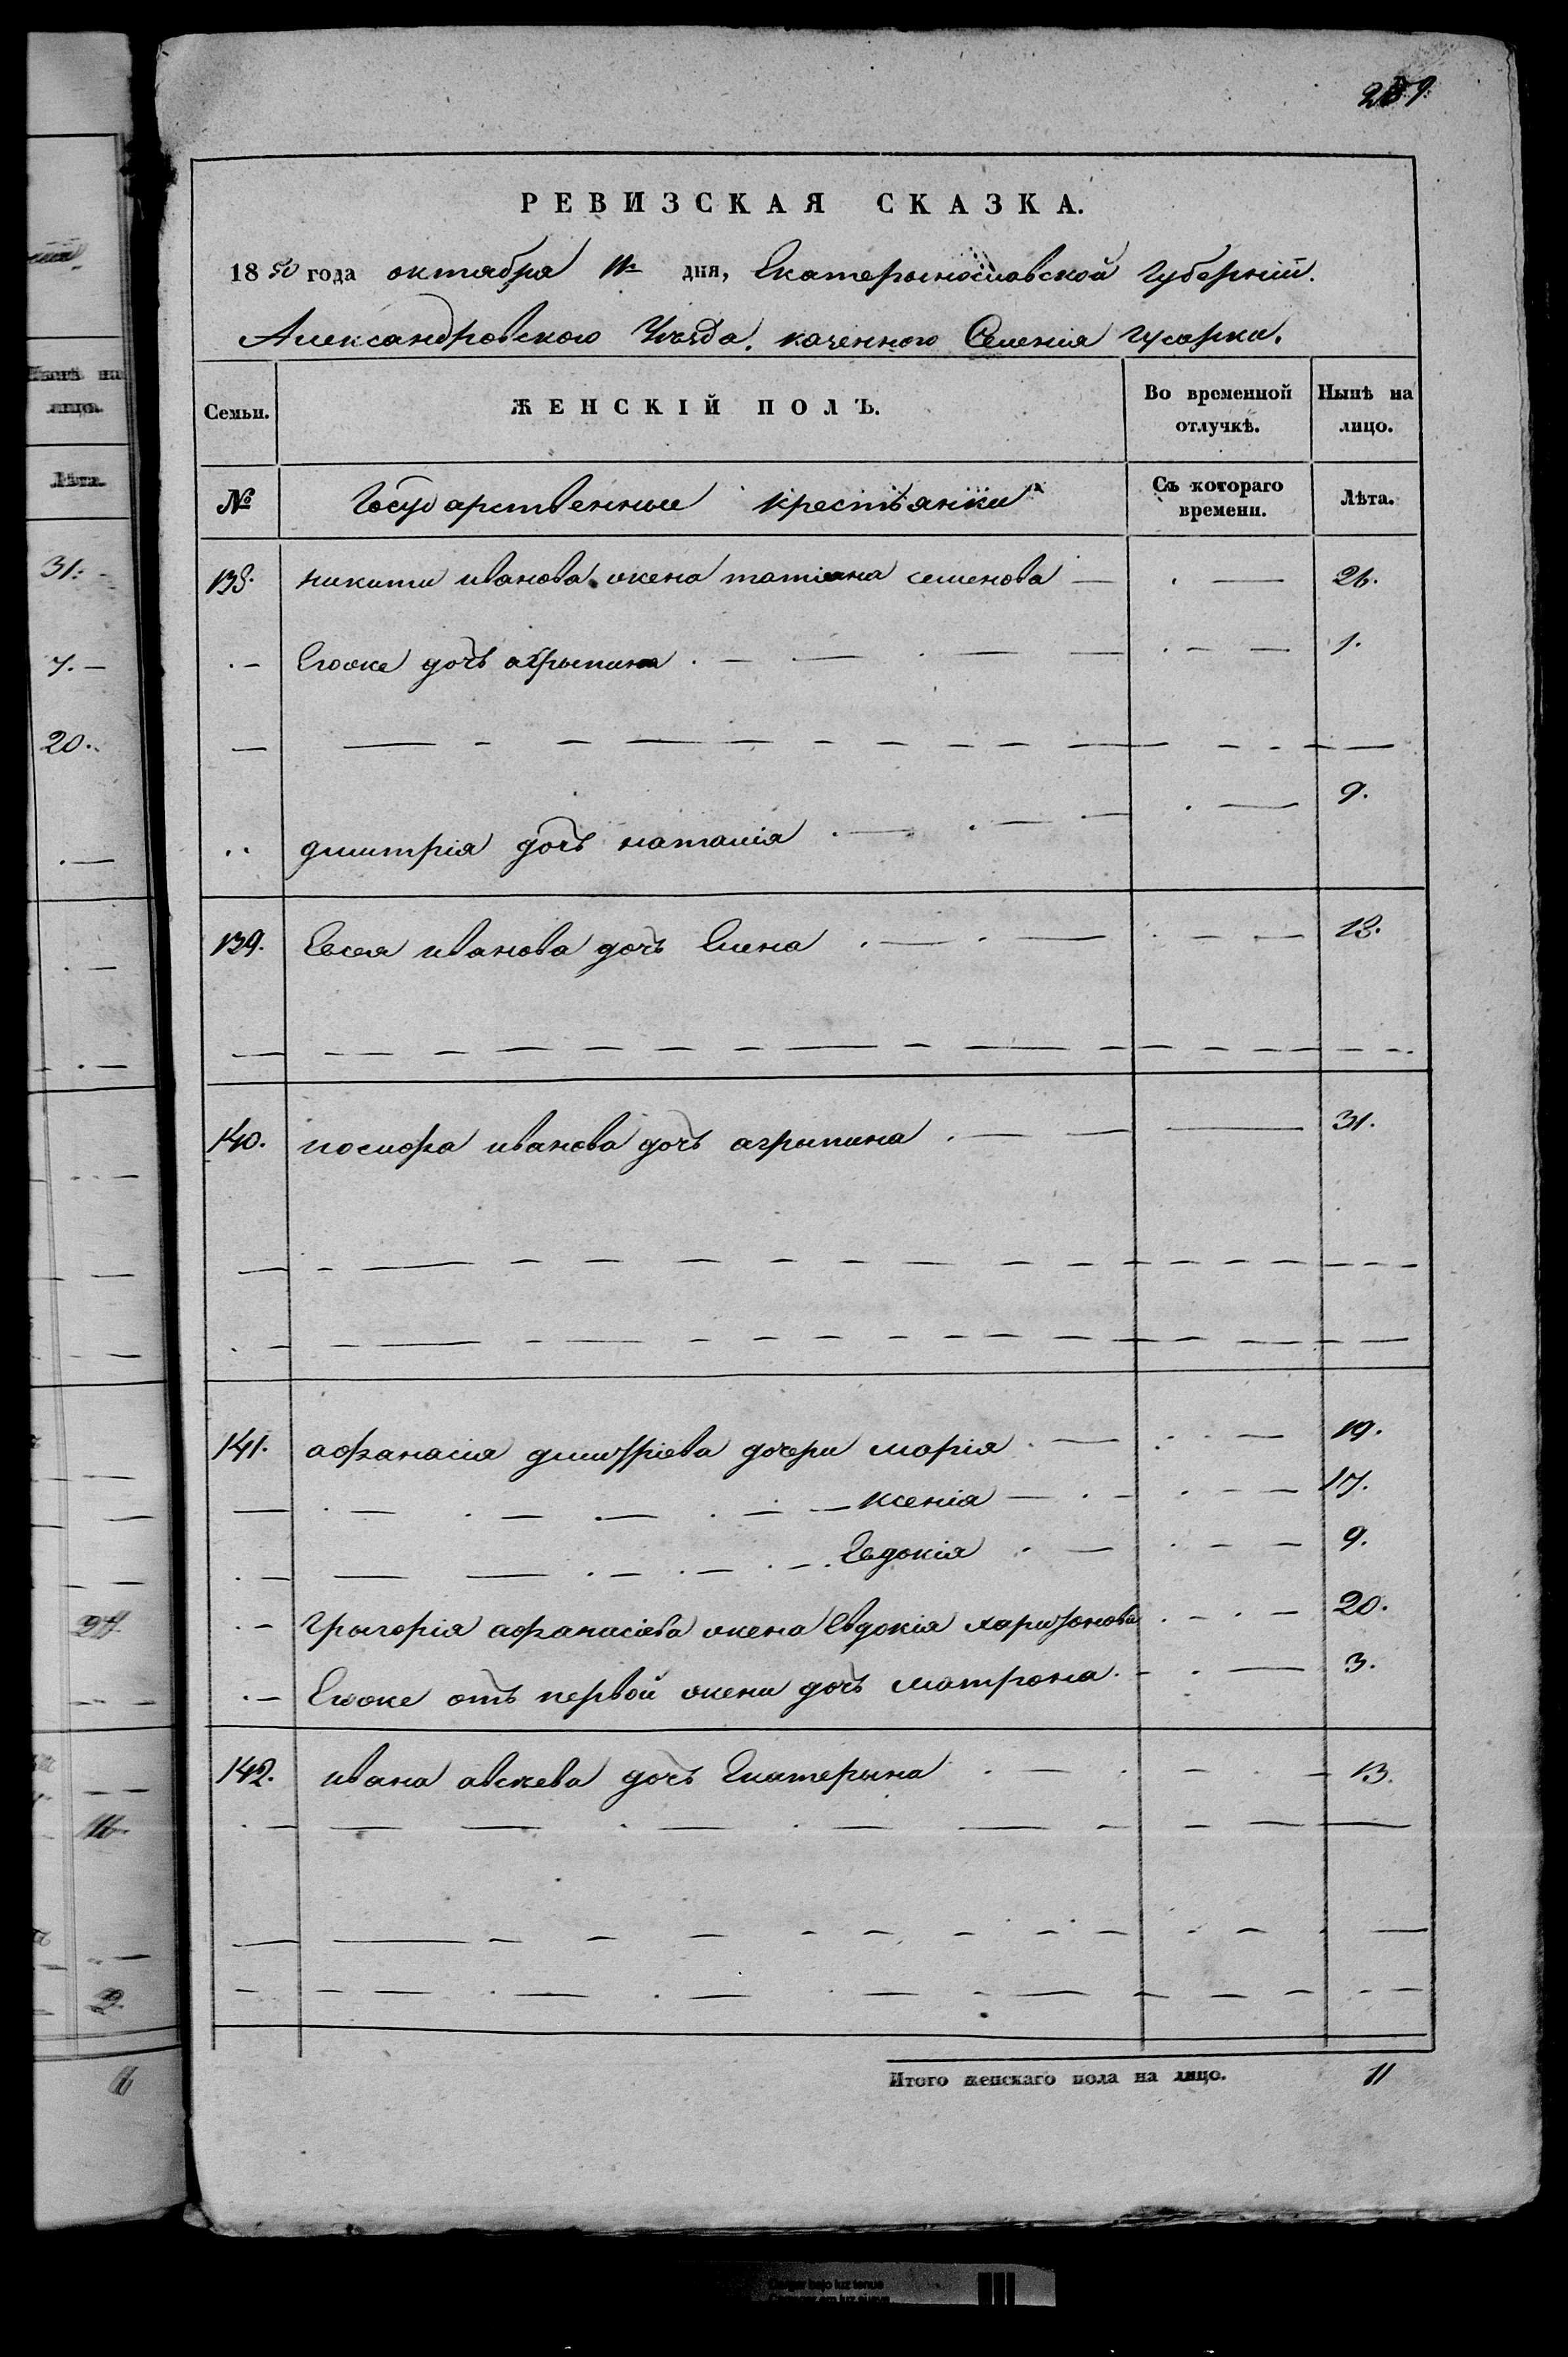 РЕВИЗСКАЯ СКАЗКА.
1850 года октября дня, Екатериносла́вской Губерніи.
Александровского Уѣзда. казенного Селенія Гусарки.
Семьи. ЖЕНСКІЙ ПОЛЪ. Во временной отлучкѣ. Нынѣ на лицо.
№ Государственные крестьянки Съ котораго времени. Лѣта.
138. никиты иванова жена татіяна семенова 26.
Егоже дочь агрыпина 1.
дмитрія дочь наталія 9.
139. Евсея иванова дочь Елена 12.
140. иосифа иванова дочь агрыпина 31.
141. афанасія дмитріева дочери марія 19.
ксенія 17.
Евдокія 9.
Грыгорія афанасіева жена Евдокія харитонова 20.
Егоже отъ первой жени дочь матрона 3.
142. ивана авсеева дочь Екатерына 13.
Итого женскаго пола на лицо. 11
Нынѣ на
лицо.
Лѣта.
31.
7.
20.